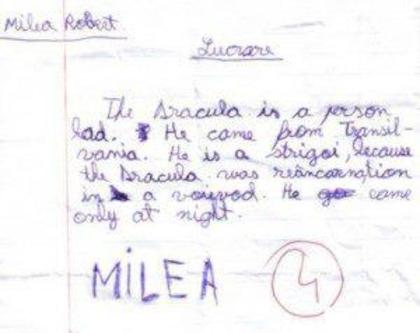 Milea Robert
Lucrare
The Dracula is a person
bad. He came from Transil-
vania. He is a strigoi, because
the Dracula was reancarnation
in a voivod. He came
only at night.
MiLEA
4